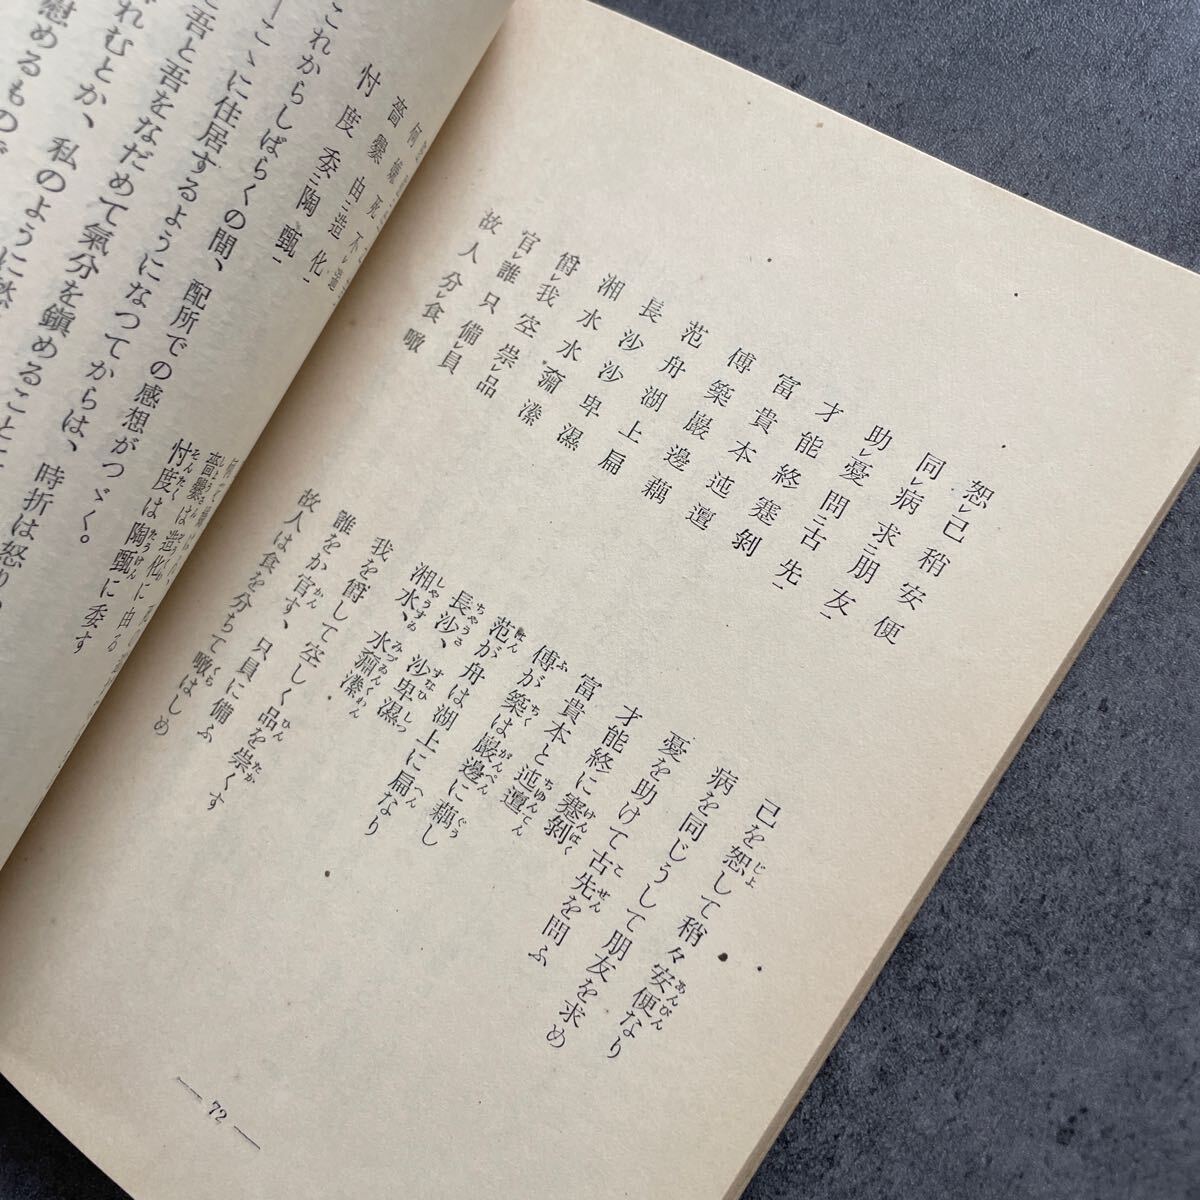 恕レ己稍安便
同レ病求二朋友一
助レ憂問二古先一
才能終蹇剝
富貴本迍邅
傅築巖邊耦
范舟湖上扁
長沙沙卑濕
湘水水㴩潫
爵レ我空崇レ品
官レ誰只備レ員
故人分レ食噉
己を恕して稍々安便なり
病を同じうして朋友を求め
憂を助けて古先を問ふ
才能終に蹇剝
富貴本と迍邅
傅が築は巖邊に耦し
范が舟は湖上に扁なり
長沙、沙卑濕
湘水、水㴩潫
我を爵して空しく品を崇くす
誰をか官す、只員に備ふ
故人は食を分ちて噉はしめ
— 72 —
嗇爨由二造化一
忖度委二陶甄一
嗇爨は造化に由る
忖度は陶甄に委す
これからしばらくの間、配所での感想がつゞく。
こゝに住居するようになつてからは、時折は怒り
吾と吾をなだめて氣分を鎭めることに
れむとか、私のように愁
慰めるもので